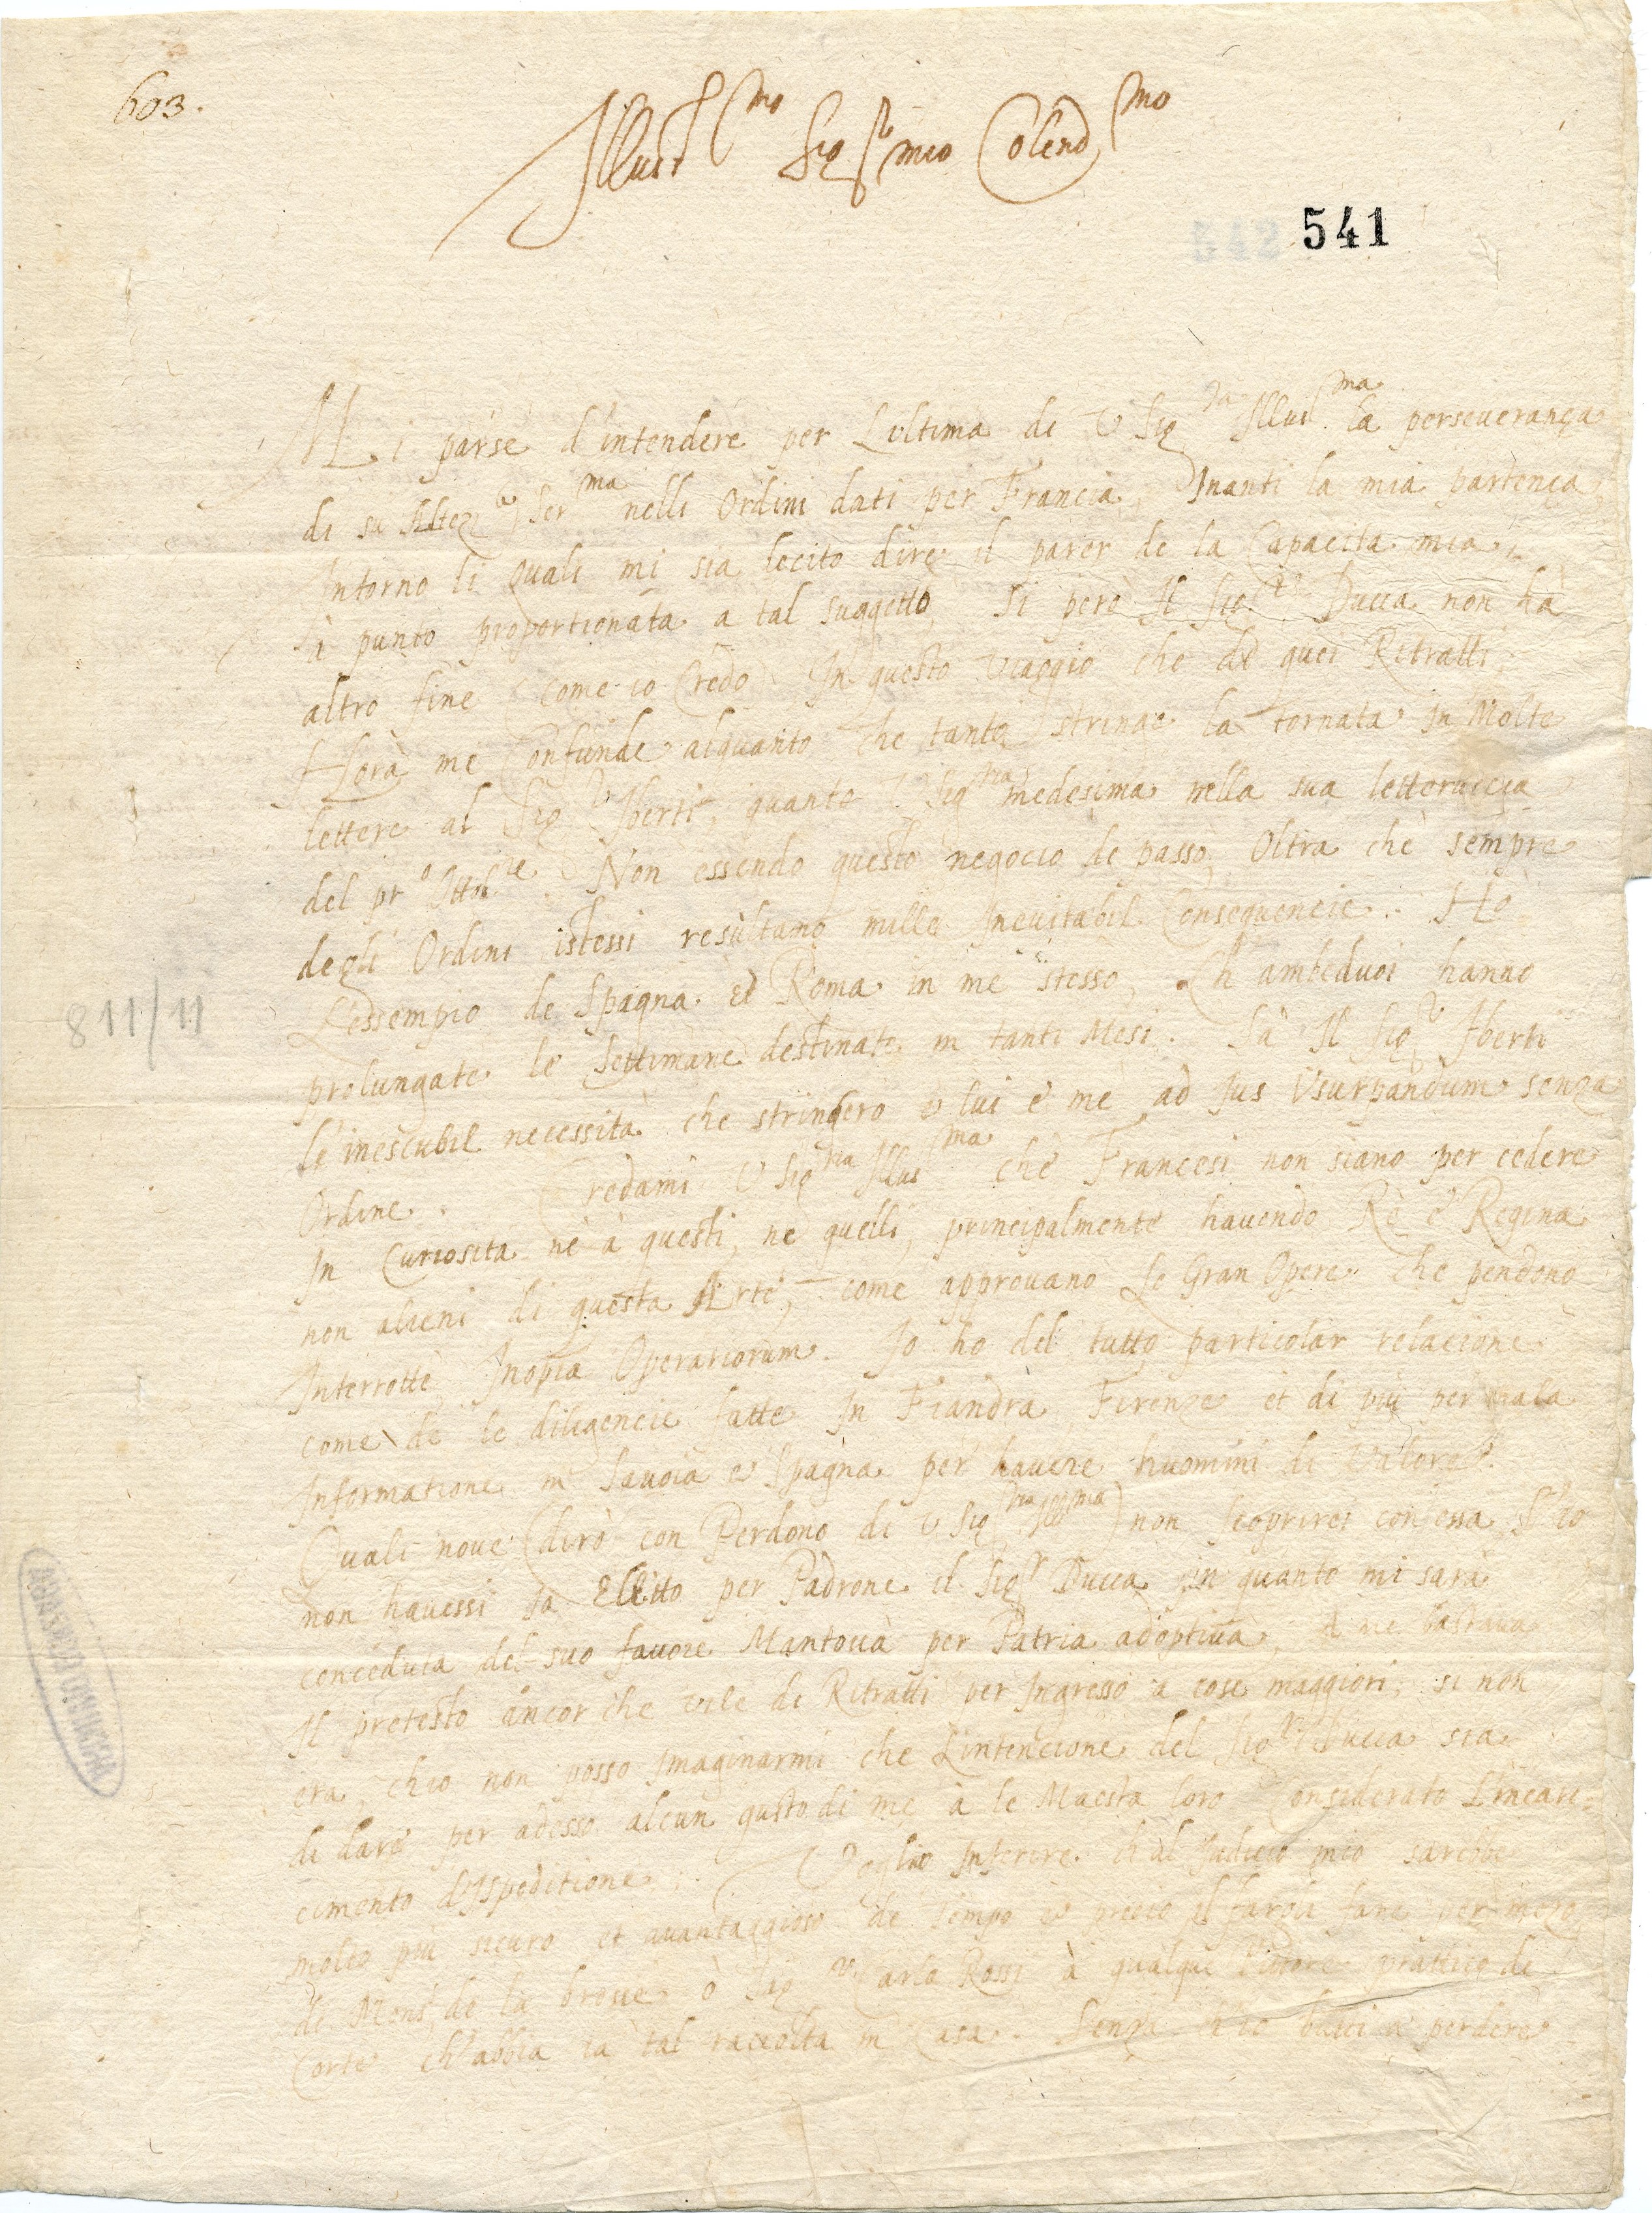 603.
Illustmo Sigr mio Colendmo
541
Mi parse d'intendere per L'ultima di V Sigria Illusma la perseverança
di su Alteza Serma nelli Ordini dati per Francia, Inanti la mia partença
Intorno li quali mi sia lecito dire il parer de la Capacita mia,
Si punto proportionata a tal suggetto, Si però Il Sigr Ducca non hà
altro fine (come io Credo) In questo viaggio che de quei Ritratti,
Horà me Confunde alquanto che tanto stringe la tornata in Molte
lettere al Sigr Iberti, quanto V Sigria medesima nella sua letteruccia
del pro Ottobre. Non essendo questo negocio di passo, Oltra che sempre
degli Ordini istessi resultano mille Inevitabil Consequencie. Ho
L'essempio de Spagna et Roma in me stesso, Ch'ambeduoi hanno
prolungate le Settimane destinate in tanti Mesi. Sà Il Sigr Iberti
le inescubil necessita che strinsero e lui e me ad jus Usurpandum senza
Ordine. Credami V Sigria Illusma che Francesi non siano per cedere
In Curiosita ne à questi, ne quelli, principalmente havendo Rè e Regina
non alieni di questa Arte, come approvano Le Gran Opere che pendono
Interrotte, Inopia Operariorum. Io ho del tutto particolar relacione
come de le diligencie fatte In Fiandra, Firenze et di più per mala
Informatione in Savoia e Spagna per havere huomini di Valore.
Quali nove (dirò con Perdono di V Sigria Illma) non scoprirei con essa, S'io
non havessi ia Elletto per Padrone il Sigr Ducca in quanto mi sarà
conceduta del suo favore Mantova per Patria adoptiva, A ne bastava
Il pretesto ancor che vile di Ritratti per Ingresso a cose maggiori, si non
era, chio non posso imaginarmi che L'intencione del Sigr Ducca sia
di dare per adesso alcun gusto di me a le Maesta loro Considerato L'incare=
cimento d'Ispeditione. Voglio Inferire ch'al Judicio mio sarebbe
molto più sicuro et avantaggioso de Tempo e precio il farli fare per mezo
di Mons de la Brosse ò Sigr Carlo Rossi à qualque Pittore prattico di
Corte ch'abbia ia tal raccolta in Casa. Senza ch'io          perdere
811/11